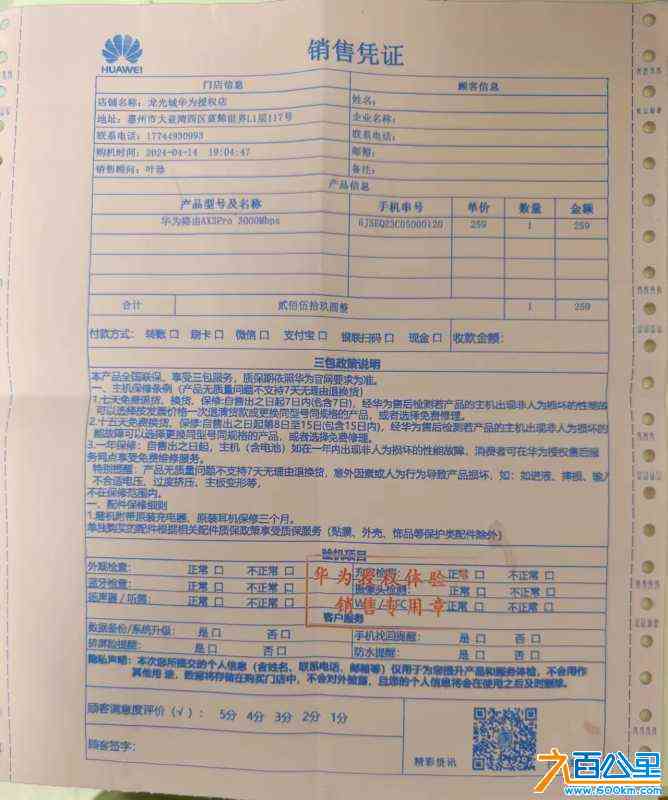 HUAWEI
销售凭证
门店信息 顾客信息
店铺名称：龙光城华为授权店 姓名：
地址：惠州市大亚湾西区 世界L1层117号 企业名称：
联系电话：17744930993 联系电话：
购机时间：2024-04-14 19:04:47 邮箱：
销售顾问：叶 备注：
产品信息
产品型号及名称 手机串号 单价 数量 金额
华为路由AX3Pro 3000Mbps 6JSEQ23C05000120 259 1 259
合计 贰佰伍拾玖圆整 1 259
付款方式： 转账 口 刷卡 口 微信 口 支付宝 口 银联扫码 口 现金 口 收款金额：
三包政策说明
本产品全国联保，享受三包服务，质保期依照华为官网要求为准。
一、主机保修条例（产品无质量问题不支持7天无理由退换货）
1.七天免费退货、换货、保修:自售出之日起7日内(包含7日)，经华为售后检测若产品的主机出现非人为损坏的性能故
可以选择按发票价格一次退清货款或更换同型号同规格的产品，或者选择免费修理。
2.十五天免费换货、保修:自售出之日起第8日至15日(包含15日内)，经华为售后检测若产品的主机出现非人为损坏的
能故障可以选择更换同型号同规格的产品，或者选择免费修理。
3.一年保修：自售出之日起，主机（含电池）如在一年内出现非人为损坏的性能故障，消费者可在华为授权售后服
务网点享受免费维修服务。
特别提醒：产品无质量问题不支持7天无理由退换货，意外因素或人为行为导致产品损坏，如：如进液、摔损、输入
不合适电压、过度挤压、主板变形等，
不在保修范围内。
一、配件保修细则
1.随机附带原装充电器、原装耳机保修三个月。
单独购买的配件根据相关配件质保政策享受质保服务（贴膜、外壳、饰品等保护类配件除外）
验机项目
外观检查： 正常 口 不正常 口 正常 口 不正常 口
蓝牙检查： 正常 口 不正常 口 摄像头检测： 正常 口 不正常 口
扬声器/听筒： 正常 口 不正常 口 正常 口 不正常 口
华为授权体验
销售专用章
客户服务
数据备份/系统升级： 是 口 否 口 手机找回提醒： 是 口 否 口
挤屏险提醒： 是 口 否 口 防水提醒： 是 口 否 口
隐私声明：本次您所提交的个人信息（含姓名、联系电话、邮箱等）仅用于为您提升产品和服务体检，不会用作
其他用 途，数据将存储在购买门店中，不会对外披露，且您的个人信息将会在使用之后及时删除。
顾客满意度评价（√）： 5分 4分 3分 2分 1分
顾客签字：
精彩资讯
六百公里
www.600km.com